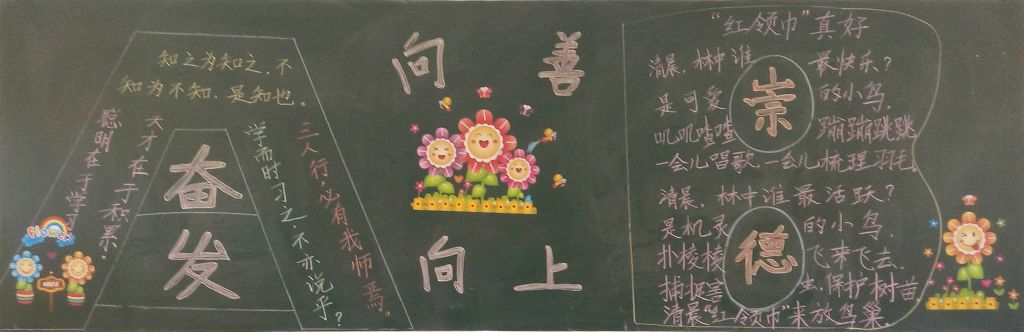 知之为知之,不
知为不知,是知也。
聪明在于学习
天才在于积累。
奋
发
学而时习之不亦说乎?
三人行,必有我师焉。
Flower
HOUSE
向 善
向 上
“红领巾”真好
清晨,林中谁 最快乐?
是可爱 的小鸟,
叽叽喳喳 蹦蹦跳跳
一会儿唱歌,一会儿梳理羽毛。
崇
清晨,林中谁最活跃?
是机灵 的小鸟,
扑棱棱 飞来飞去,
捕捉害 虫,保护树苗。
德
清晨“红领巾”来放鸟巢。